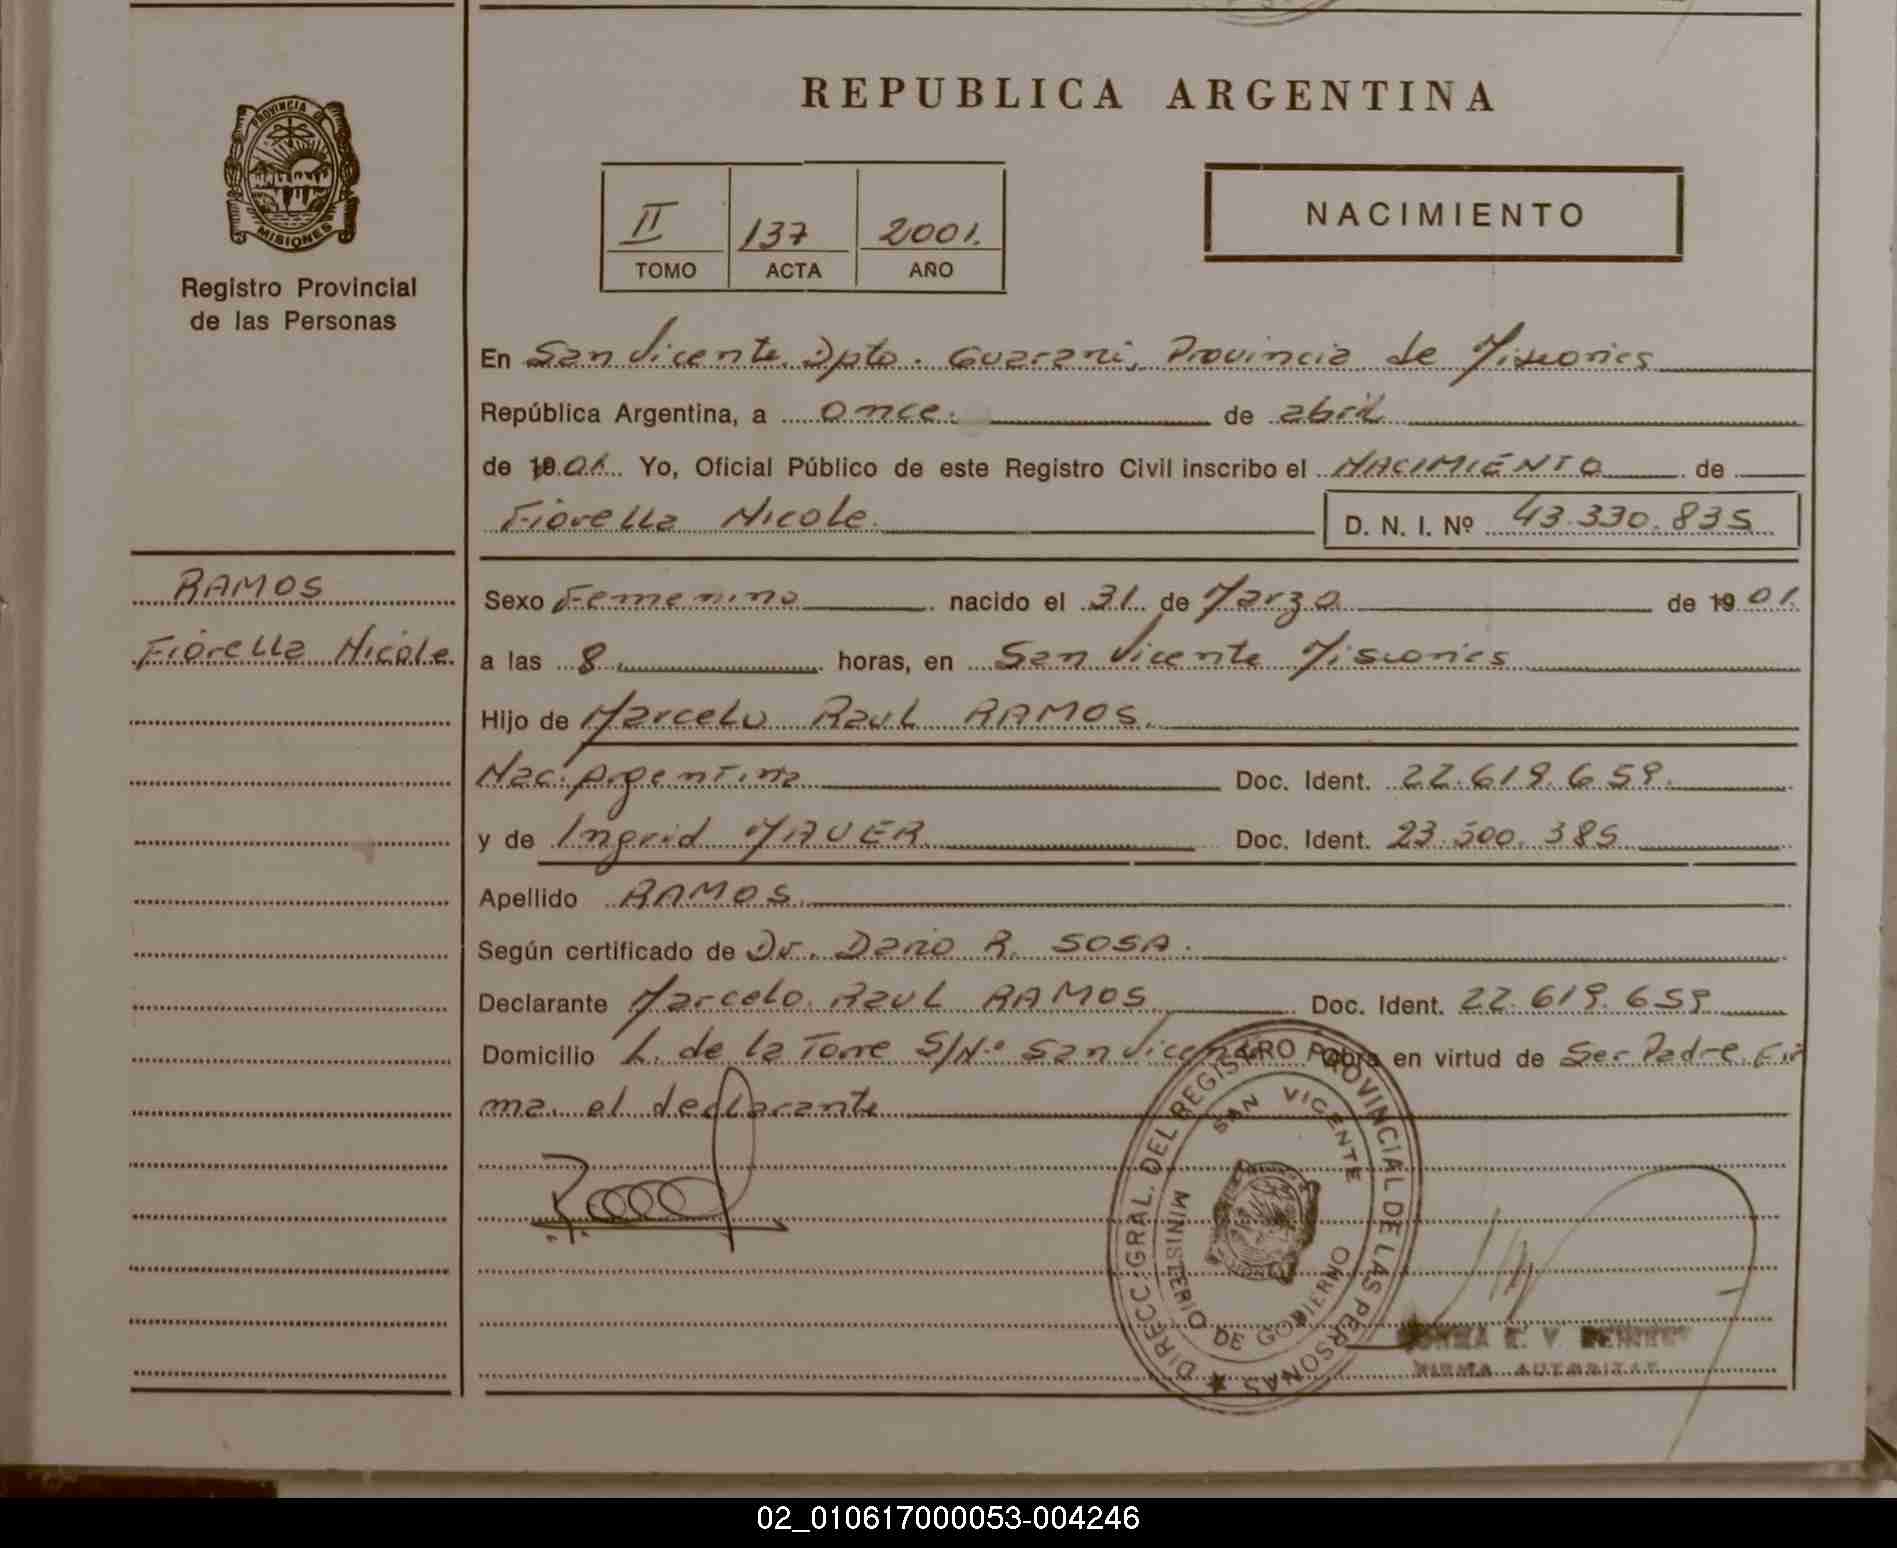 REPUBLICA ARGENTINA
PROVINCIA DE MISIONES
Registro Provincial
de las Personas
II 137 2001.
TOMO ACTA AÑO
NACIMIENTO
En San Vicente Dpto. Guarani, Provincia de Misiones
República Argentina, a once. de abril
de 19 01. Yo, Oficial Público de este Registro Civil inscribo el NACIMIENTO de
Fiorella Nicole. D. N. I. Nº 43.330.835
RAMOS
Fiorella Nicole
Sexo Femenino nacido el 31 de Marzo de 19 01.
a las 8 horas, en San Vicente Misiones
Hijo de Marcelo Raul RAMOS.
Nac. Argentina Doc. Ident. 22.619.659.
y de Ingrid MAUER Doc. Ident. 23.500.385
Apellido RAMOS
Según certificado de Dr. Dario R. SOSA.
Declarante Marcelo Raul RAMOS Doc. Ident. 22.619.659
Domicilio L. de la Torre S/N.º San Vicente Obra en virtud de Ser Padre. Fir
ma el declarante
DIRECC. GRAL. DEL REGISTRO PROVINCIAL DE LAS PERSONAS
SAN VICENTE
MINISTERIO DE GOBIERNO
02_010617000053-004246